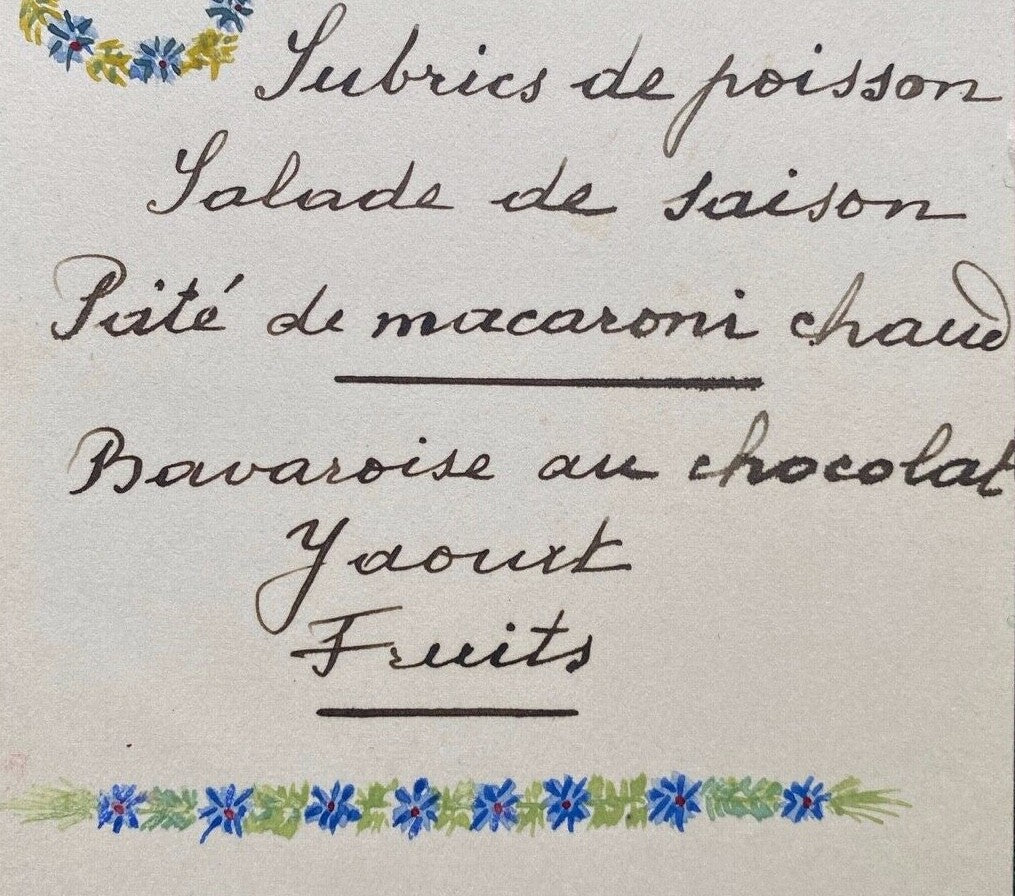 Subrics de poisson
Salade de saison
Pâté de macaroni chaud
Bavaroise au chocolat
Yaourt
Fruits